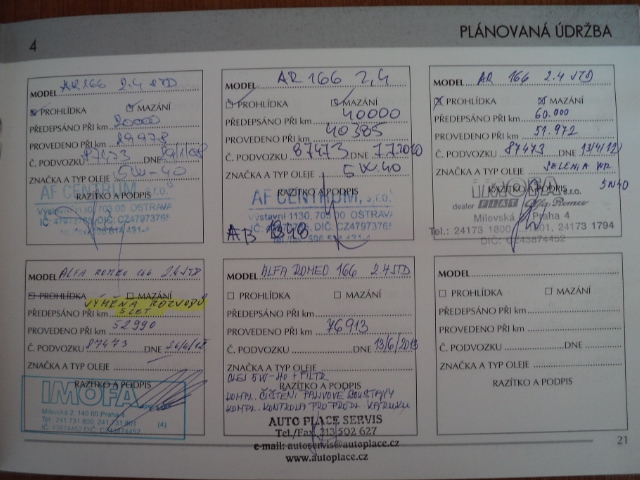 4
PLÁNOVANÁ ÚDRŽBA
MODEL AR 166 2.4 JTD
PROHLÍDKA MAZÁNÍ
PŘEDEPSÁNO PŘI km 20000
PROVEDENO PŘI km
Č. PODVOZKU 87473 DNE
ZNAČKA A TYP OLEJE 5W-40
RAZÍTKO A PODPIS
AF CENTRUM, s.r.o.
Výstavní 1130, 709 00 OSTRAVA
MODEL AR 166 2,4
PROHLÍDKA MAZÁNÍ
PŘEDEPSÁNO PŘI km 40000
PROVEDENO PŘI km 40385
Č. PODVOZKU 87473 DNE
ZNAČKA A TYP OLEJE 5W40
RAZÍTKO A PODPIS
AF CENTRUM, s.r.o.
Výstavní 1130, 709 00 OSTRAVA
MODEL AR 166 2.4 JTD
PROHLÍDKA MAZÁNÍ
PŘEDEPSÁNO PŘI km 60.000
PROVEDENO PŘI km 51.972
Č. PODVOZKU 87473 DNE
ZNAČKA A TYP OLEJE SELENIA WR
5W40
RAZÍTKO A PODPIS
IMOFA s.r.o.
dealer FIAT Alfa Romeo
Milovská, Praha 4
MODEL ALFA ROMEO 166 2.4 JTD
PROHLÍDKA MAZÁNÍ
VÝMĚNA ROZVODŮ
PŘEDEPSÁNO PŘI km 5 LET
PROVEDENO PŘI km 52990
Č. PODVOZKU 87473 DNE
ZNAČKA A TYP OLEJE
RAZÍTKO A PODPIS
IMOFA
MODEL ALFA ROMEO 166 2.4 JTD
PROHLÍDKA MAZÁNÍ
PŘEDEPSÁNO PŘI km
PROVEDENO PŘI km 76913
Č. PODVOZKU DNE 13/6/2013
ZNAČKA A TYP OLEJE
OLEJ 5W-40 + FILTR
RAZÍTKO A PODPIS
KOMPL. ČIŠTĚNÍ PALIVOVÉ SOUSTAVY
KOMPL. KONTROLA PRO PRODL. ZÁRUKU
AUTO PLACE SERVIS
Tel./Fax 313 502 627
e-mail: autoservis@autoplace.cz
www.autoplace.cz
MODEL
PROHLÍDKA MAZÁNÍ
PŘEDEPSÁNO PŘI km
PROVEDENO PŘI km
Č. PODVOZKU DNE
ZNAČKA A TYP OLEJE
RAZÍTKO A PODPIS
21